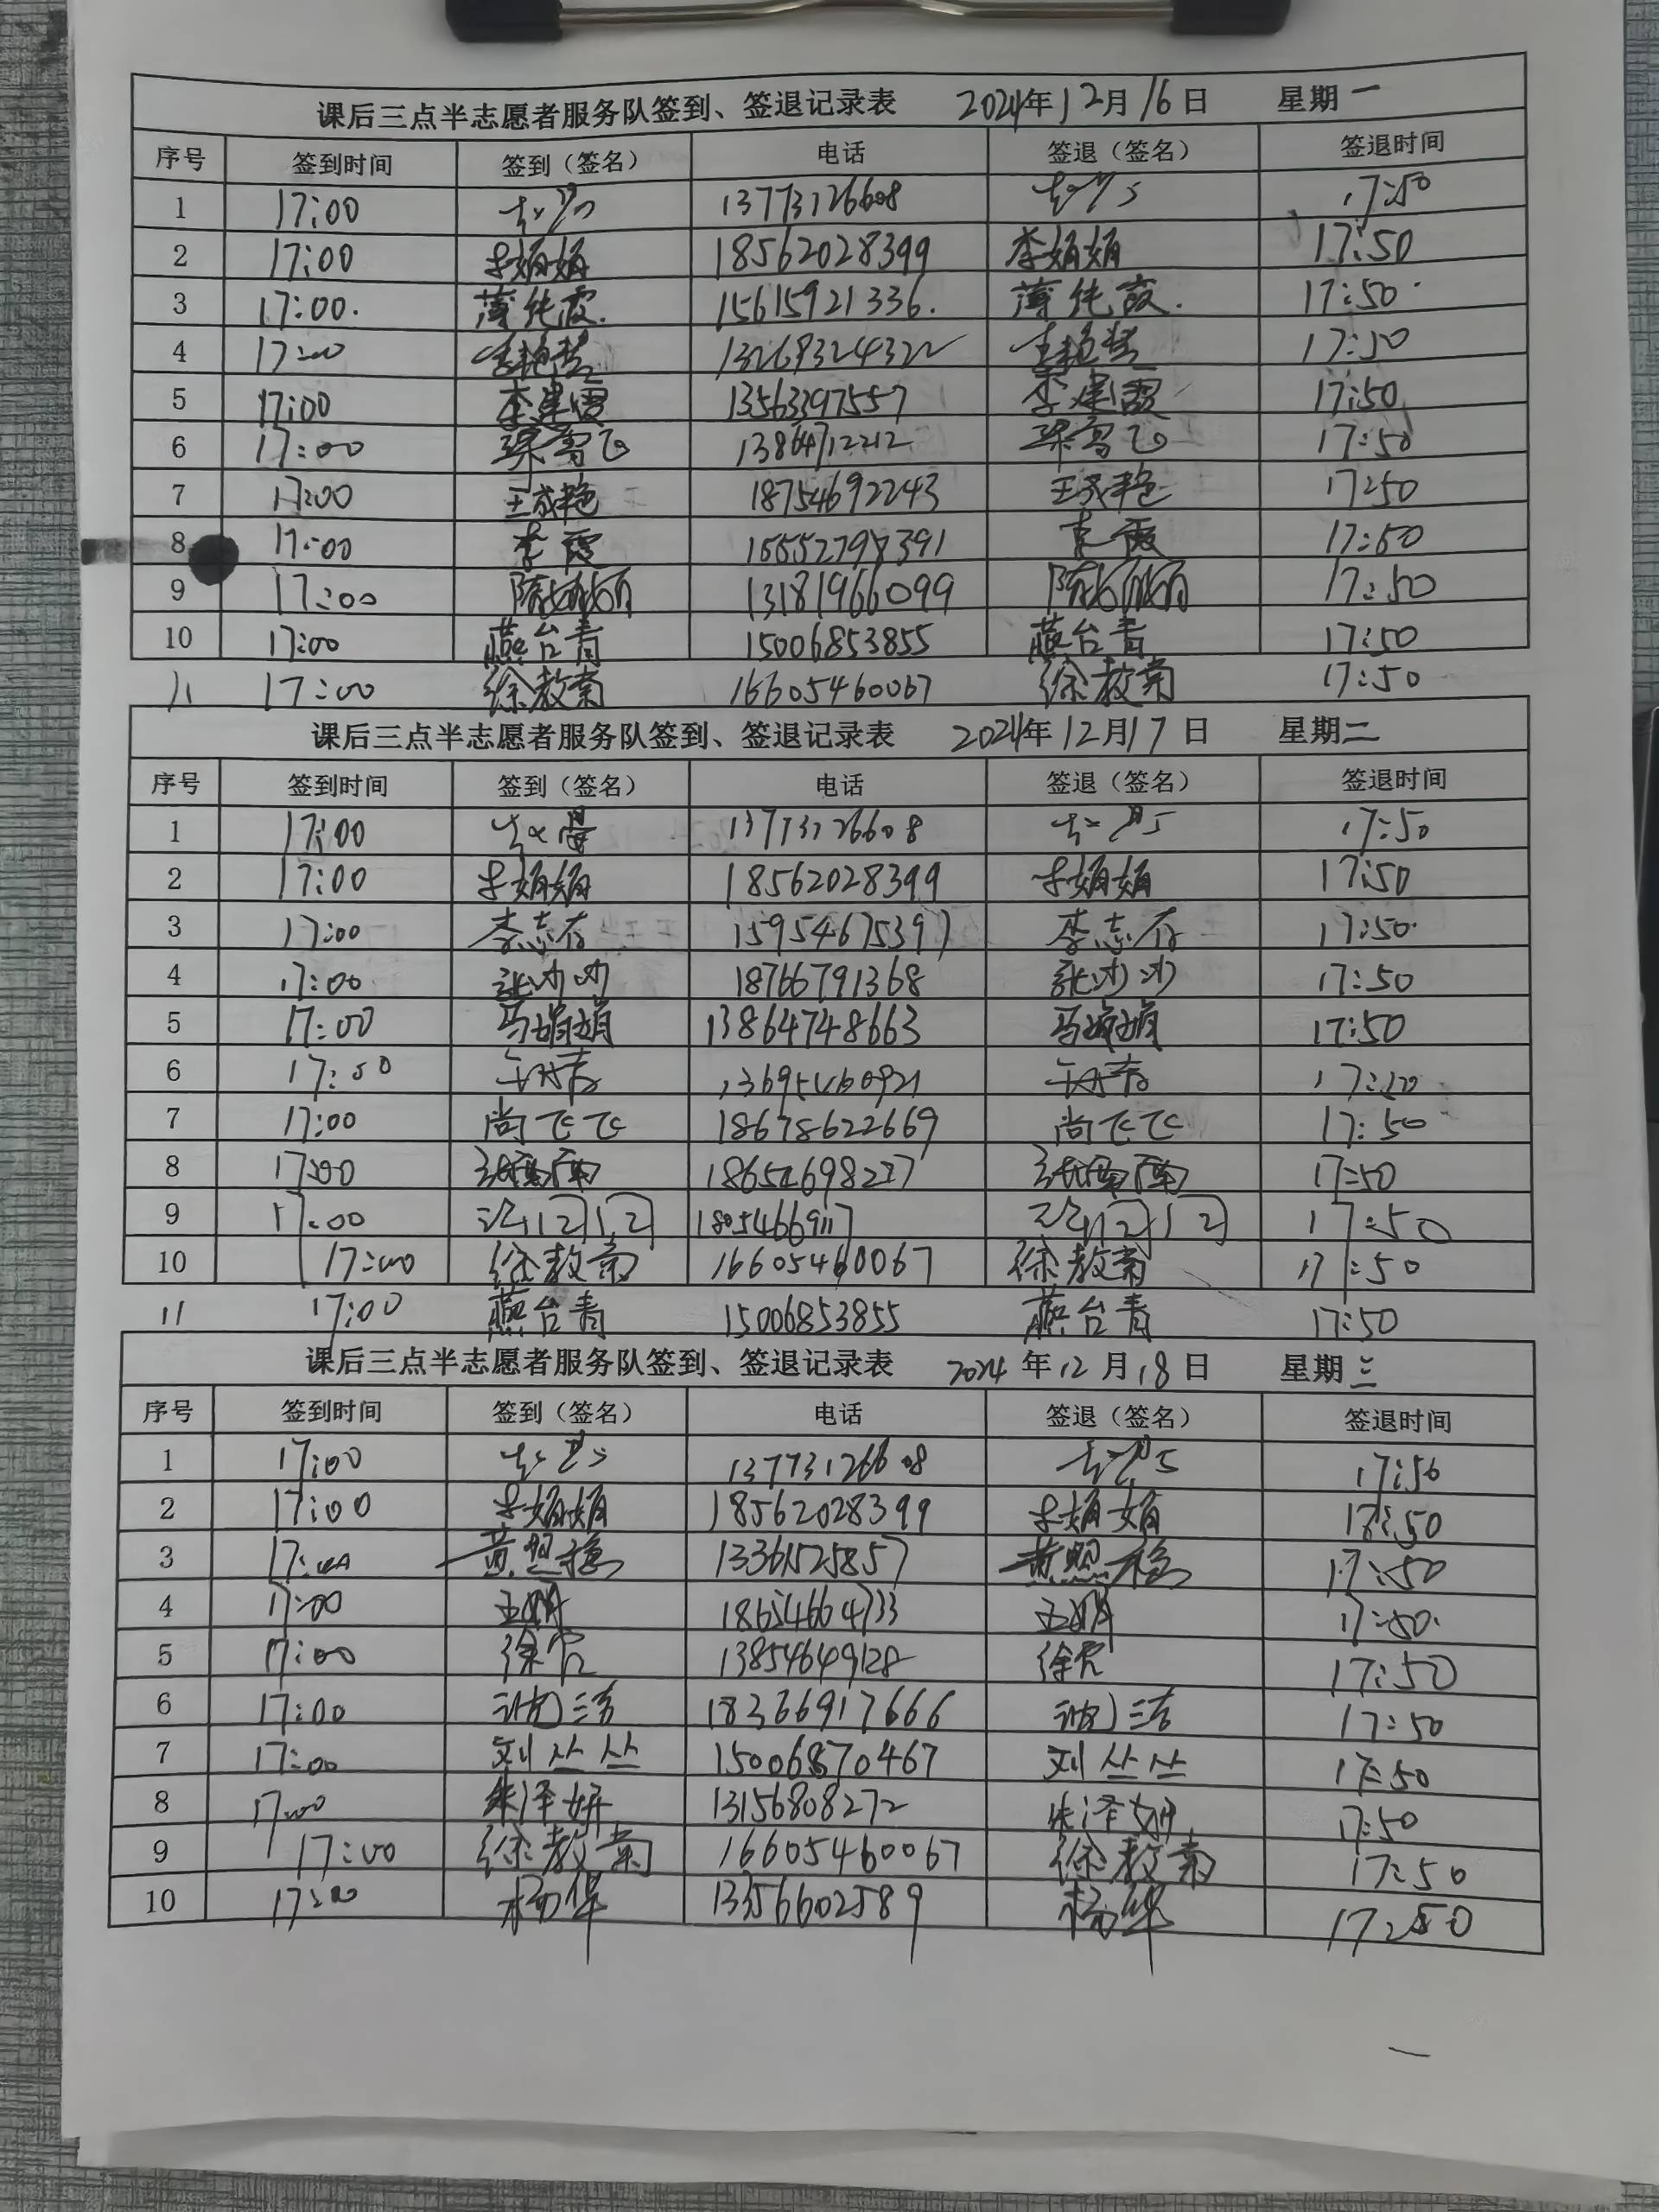 课后三点半志愿者服务队签到、签退记录表 2024年12月16日 星期一
序号 签到时间 签到（签名） 电话 签退（签名） 签退时间
1 17:00 13773126608 17:50
2 17:00 李娟娟 18562028399 李娟娟 17:50
3 17:00. 薄纯霞. 15615921336. 薄纯霞. 17:50.
4 17:00 17:50
5 17:00 李建霞 13563397557 李建霞 17:50
6 17:00 梁雪飞 13864712212 梁雪飞 17:50
7 17:00 王成艳 18754692243 王成艳 17:50
8 17:00 李霞 15552798391 李霞 17:50
9 17:00 陈娟娟 13181966099 陈娟娟 17:50
10 17:00 燕台青 15006853855 燕台青 17:50
11 17:00 徐教菊 16605460067 徐教菊 17:50
课后三点半志愿者服务队签到、签退记录表 2024年12月17日 星期二
序号 签到时间 签到（签名） 电话 签退（签名） 签退时间
1 17:00 13773126608 17:50
2 17:00 李娟娟 18562028399 李娟娟 17:50
3 17:00 李志存 15954675397 李志存 17:50.
4 17:00 张沙沙 18766791368 张沙沙 17:50
5 17:00 马娟娟 13864748663 马娟娟 17:50
6 17:50 13695460921
7 17:00 尚飞飞 18678622669 尚飞飞 17:50
8 17:00 18654698227 17:50
9 17:00 18054669117 17:50
10 17:00 徐教菊 16605460067 徐教菊 17:50
11 17:00 燕台青 15006853855 燕台青 17:50
课后三点半志愿者服务队签到、签退记录表 2024年12月18日 星期三
序号 签到时间 签到（签名） 电话 签退（签名） 签退时间
1 17:00 13773126608 17:50
2 17:00 李娟娟 18562028399 李娟娟 17:50
3 17:00 黄照稳 13361525857 黄照稳 17:50
4 17:00 王娟 18654664733 王娟 17:50.
5 17:00 徐宾 13854649128 徐宾 17:50
6 17:00 18366917666 17:50
7 17:00 刘丛丛 15006870467 刘丛丛 17:50
8 17:00 朱泽妍 13156808272 朱泽妍 17:50
9 17:00 徐教菊 16605460067 徐教菊 17:50
10 17:00 杨华 13356602589 杨华 17:50